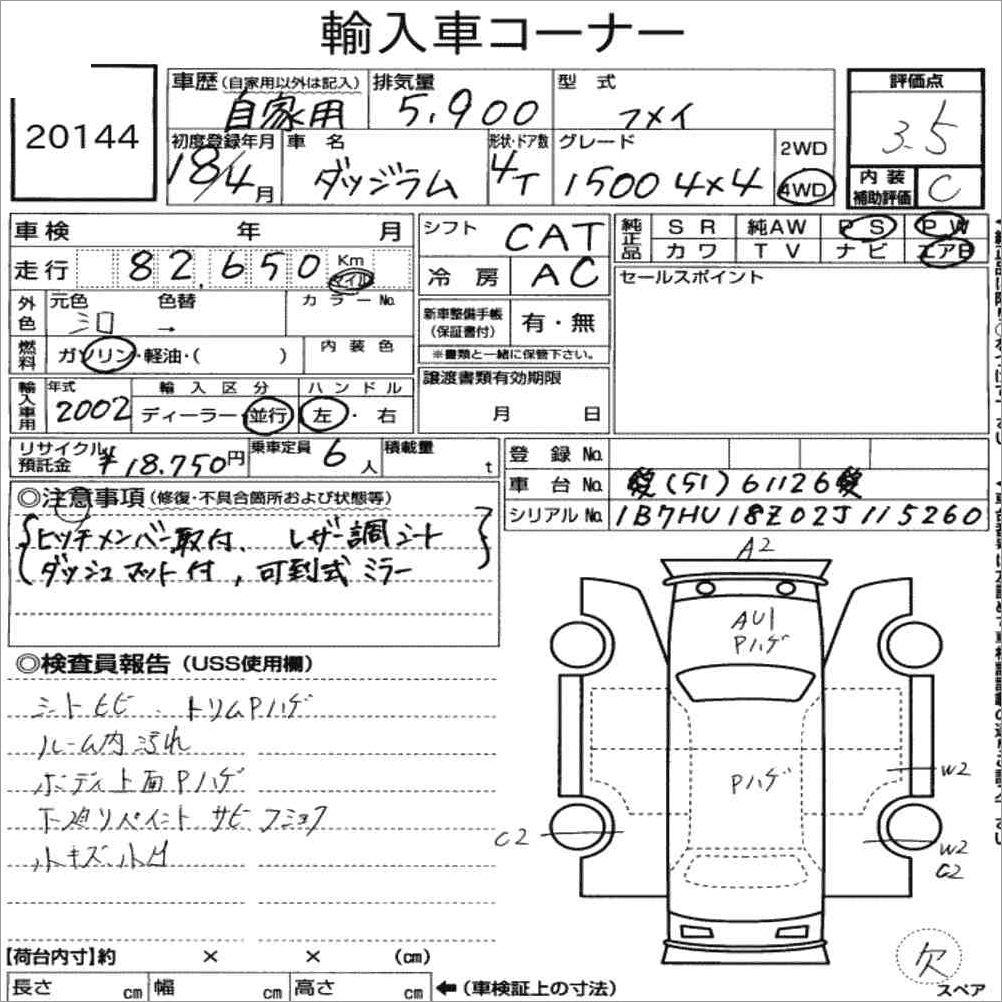 輸入車コーナー
20144
車歴(自家用以外は記入) 自家用
排気量 5,900
型式 フメイ
評価点 3.5
初度登録年月 18/4月
車名 ダッジラム
形状・ドア数 4T
グレード 1500 4×4
2WD
4WD
内装補助評価 C
車検 年 月
シフト CAT
純正品 SR 純AW PS PW
カワ TV ナビ エアB
走行 82,650 Km マイル
冷房 AC
セールスポイント
外色 元色 色替 カラーNo.
→
新車整備手帳(保証書付) 有・無
※書類と一緒に保管下さい。
燃料 ガソリン・軽油・( )
内装色
譲渡書類有効期限
月 日
輸入車用 年式 2002
輸入区分 ディーラー・並行
ハンドル 左・右
リサイクル預託金 ¥18,750円
乗車定員 6人
積載量 t
登録No.
車台No. (51)61126
シリアルNo. 1B7HU18Z02J115260
◎注意事項(修復・不具合箇所および状態等)
ヒッチメンバー取付、レザー調シート
ダッシュマット付,可到式ミラー
◎検査員報告(USS使用欄)
シートヒビ トリムPハゲ
ルーム内汚れ
ボディ上面Pハゲ
下廻りペイント サビ フミョク
小キズ、小凹
A2
AU1
Pハゲ
Pハゲ
W2
C2
W2
C2
欠
スペア
【荷台内寸】約 × × (cm)
長さ cm 幅 cm 高さ cm ←(車検証上の寸法)